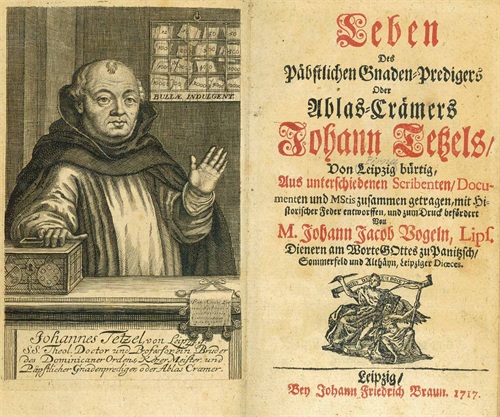 BULLÆ INDULGENT.
Johannes Tetzel von Leipzig
S.S. Theol. Doctor und Professor, ein Bruder
des Dominicaner Ordens, Ketzer Meister, und
Päpstlicher Gnadenprediger oder Ablas Cramer.
Leben
Des
Päbstlichen Gnaden-Predigers
Oder
Ablas-Crämers
Johann Tetzels/
Von Leipzig bürtig,
Aus unterschiedenen Scribenten/Docu-
menten und MStis zusammen getragen, mit Hi-
storischer Feder entworffen, und zum Druck befördert
Von
M. Johann Jacob Vogeln, Lips.
Dienern am Worte GOttes zu Panitzsch/
Sommerfeld und Althäyn, Leipziger Diœces.
Leipzig/
Bey Johann Friedrich Braun. 1717.